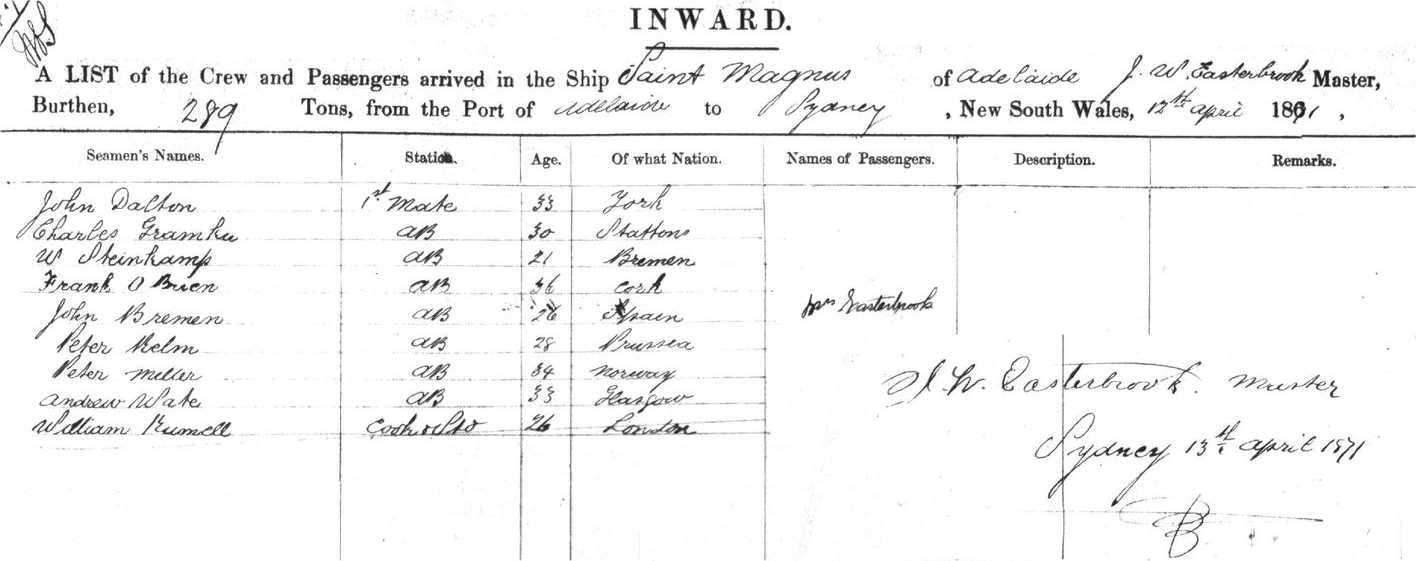 INWARD.
A LIST of the Crew and Passengers arrived in the Ship Saint Magnus of Adelaide J. W. Easterbrook Master,
Burthen, 289 Tons, from the Port of Adelaide to Sydney, New South Wales, 12th April 1871,
Seamen's Names. Station. Age. Of what Nation. Names of Passengers. Description. Remarks.
John Dalton 1st Mate 33 York
Charles Gramku AB 30 Stattons
W Steinkamp AB 21 Bremen
Frank O Brien AB 36 Cork
John Bremen AB 26 Spain Mrs Easterbrook
Peter Helm AB 28 Prussea
Peter Miller AB 34 Norway
Andrew Wate AB 33 Glasgow
William Kumell Cook & Std 26 London
J. W. Easterbrook. Master
Sydney 13th April 1871